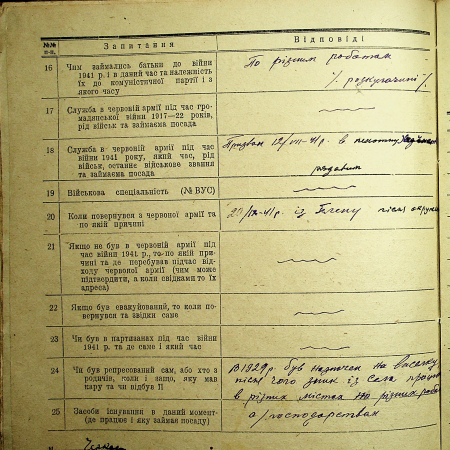 №№ п-п.
Запитання
Відповіді
16
Чим займались батьки до війни
1941 р. і в даний час та належність
їх до комуністичної партії і з
якого часу
По різним роботам
/. розкуркулені /.
17
Служба в червоній армії під час гро-
мадянської війни 1917—22 років,
рід військ та займаєма посада
18
Служба в червоній армії під час
війни 1941 року, який час, рід
військ, останнє військове звання
та займаєма посада
Призван 12/VII-41р. в
рядовим
19
Військова спеціальність (№ ВУС)
20
Коли повернувся з червоної армії та
по якій причині
41р. із після
21
Якщо не був в червоній армії під
час війни 1941 р., то-по якій при-
чині та де перебував підчас від-
ходу червоної армії (чим може
підтвердити, а коли свідками то їх
адреса)
22
Якщо був евакуйований, то коли по-
вернувся та звідки саме
23
Чи був в партизанах під час війни
1941 р. та де саме і який час
24
Чи був репресований сам, або хто з
родичів, коли і защо, яку мав
кару та чи відбув її
В 1929р. був назначен на висилку
після чого зник із села
в різних містах на різних
25
Засоби існування в даний момент-
(де працює і яку займає посаду)
господарствах